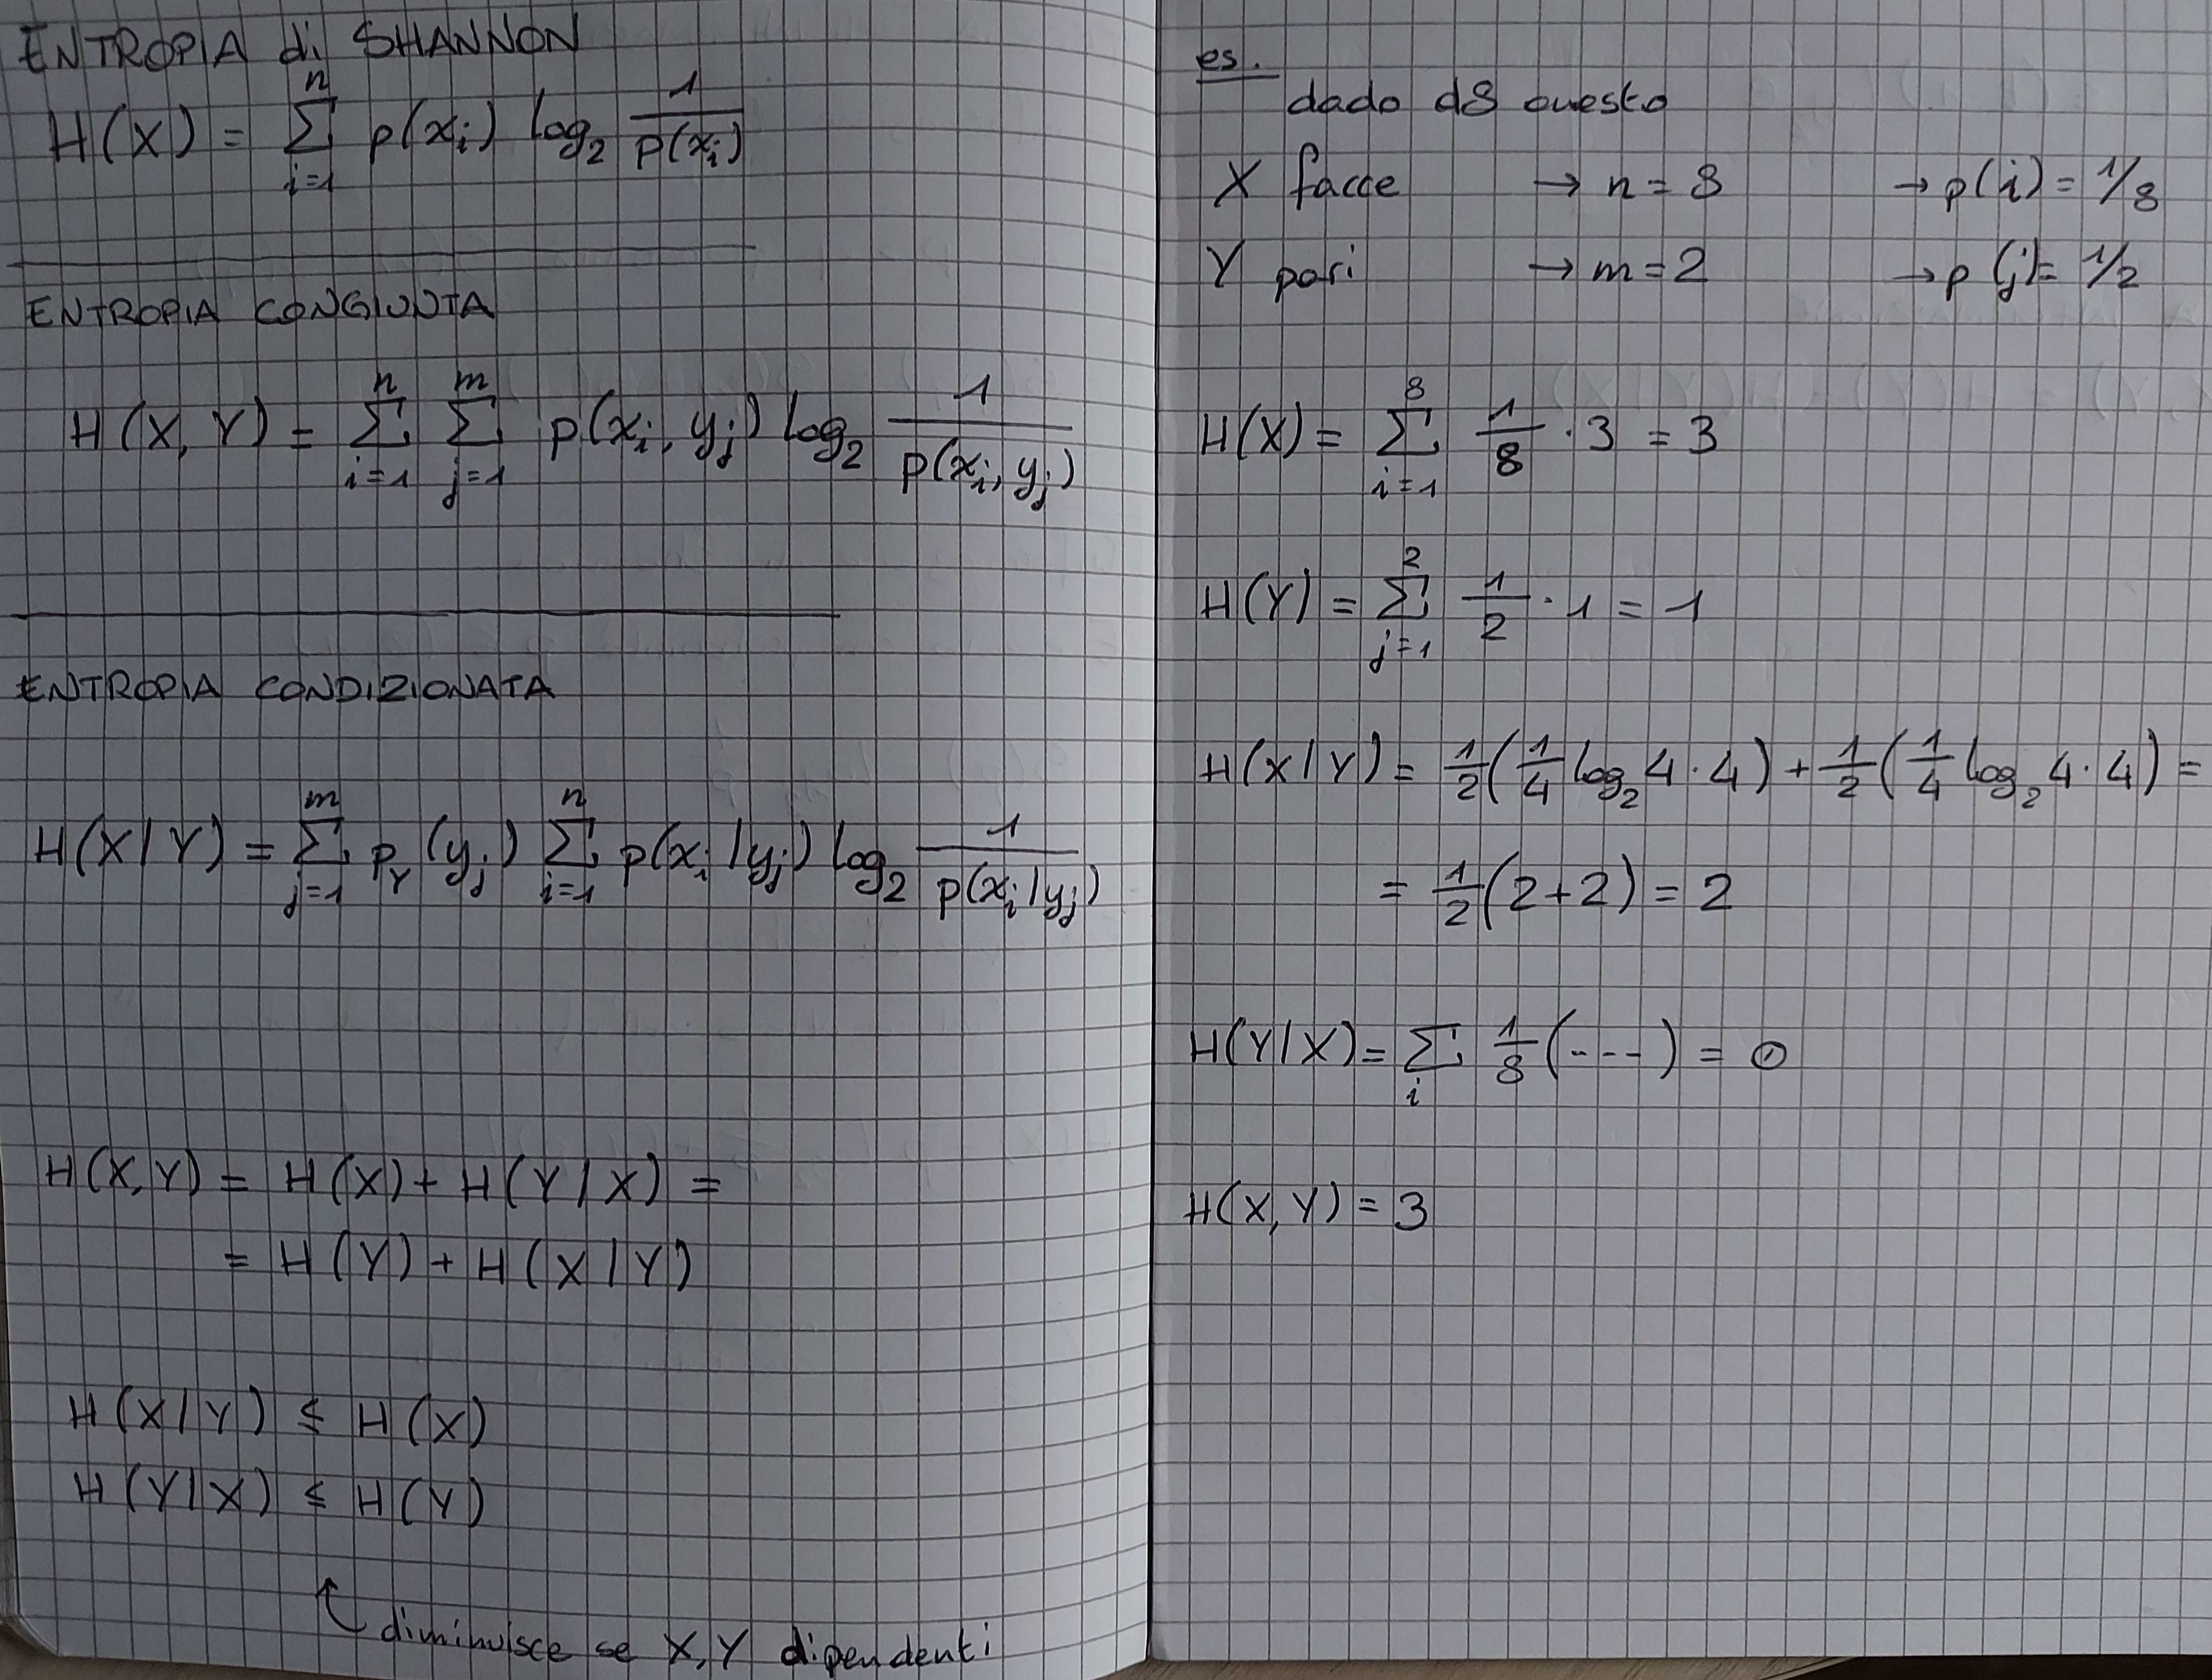 ENTROPIA di SHANNON
H(X) = \sum_{i=1}^{n} p(x_i) log_2 \frac{1}{p(x_i)}
ENTROPIA CONGIUNTA
H(X,Y) = \sum_{i=1}^{n} \sum_{j=1}^{m} p(x_i, y_j) log_2 \frac{1}{p(x_i, y_j)}
ENTROPIA CONDIZIONATA
H(X|Y) = \sum_{j=1}^{m} p_Y(y_j) \sum_{i=1}^{n} p(x_i|y_j) log_2 \frac{1}{p(x_i|y_j)}
H(X,Y) = H(X) + H(Y|X) =
= H(Y) + H(X|Y)
H(X|Y) ≤ H(X)
H(Y|X) ≤ H(Y)
diminuisce se X,Y dipendenti
es.
dado d8 onesto
X facce → n = 8 → p(i) = 1/8
Y pari → m = 2 → p(j) = 1/2
H(X) = \sum_{i=1}^{8} \frac{1}{8} · 3 = 3
H(Y) = \sum_{j=1}^{2} \frac{1}{2} · 1 = 1
H(X|Y) = \frac{1}{2}(\frac{1}{4} log_2 4 · 4) + \frac{1}{2}(\frac{1}{4} log_2 4 · 4) =
= \frac{1}{2}(2+2) = 2
H(Y|X) = \sum_{i} \frac{1}{8}(---) = 0
H(X,Y) = 3